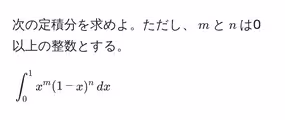 次の定積分を求めよ。ただし、 m と n は0
以上の整数とする。
∫₀¹ xᵐ(1 − x)ⁿ dx